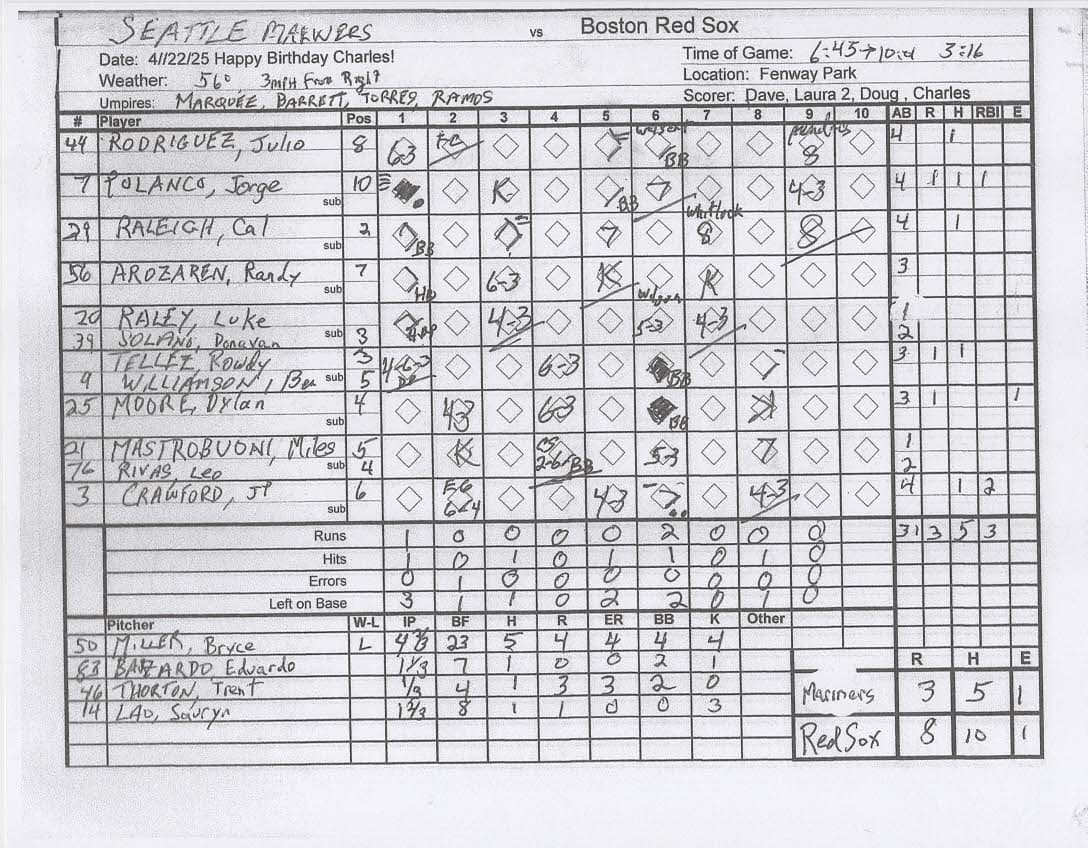 SEATTLE MARINERS vs Boston Red Sox
Date: 4//22/25 Happy Birthday Charles! Time of Game: 6:45→10:01 3:16
Weather: 56° 3mph From Right Location: Fenway Park
Umpires: MARQUEZ, BARRETT, TORRES, RAMOS Scorer: Dave, Laura 2, Doug , Charles
# Player Pos 1 2 3 4 5 6 7 8 9 10 AB R H RBI E
44 RODRIGUEZ, Julio 8 6-3 BB 8 4 1
7 POLANCO, Jorge 10 K BB 7 4-3 4 1 1 1
sub
29 RALEIGH, Cal 2 BB 7 Whitlock 8 8 4 1
sub
56 AROZAREN, Randy 7 6-3 K K 3
sub
20 RALEY, Luke 4-3 5-3 4-3 1
39 SOLANO, Donavan sub 3 2
TELLEZ, Rowdy 3 4-6-3 6-3 BB 3 1 1
9 WILLIAMSON, Ben sub 5 DP
25 MOORE, Dylan 4 43 6-3 BB K 3 1 1
sub
21 MASTROBUONI, Miles 5 K CS 2-6 BB 5-3 7 1
76 RIVAS, Leo sub 4 2
3 CRAWFORD, JP 6 6-4 4-3 4-3 4 1 2
sub
Runs 1 0 0 0 0 2 0 0 0 31 3 5 3
Hits 1 0 1 0 1 1 0 1 0
Errors 0 1 0 0 0 0 0 0 0
Left on Base 3 1 1 0 2 2 0 1 0
Pitcher W-L IP BF H R ER BB K Other
50 MILLER, Bryce L 4 2/3 23 5 4 4 4 4
83 BAZARDO, Eduardo 1 1/3 7 1 0 0 2 1
46 THORTON, Trent 1/3 4 1 3 3 2 0
14 LAO, Sauryn 1 2/3 8 1 1 0 0 3
R H E
Mariners 3 5 1
Red Sox 8 10 1